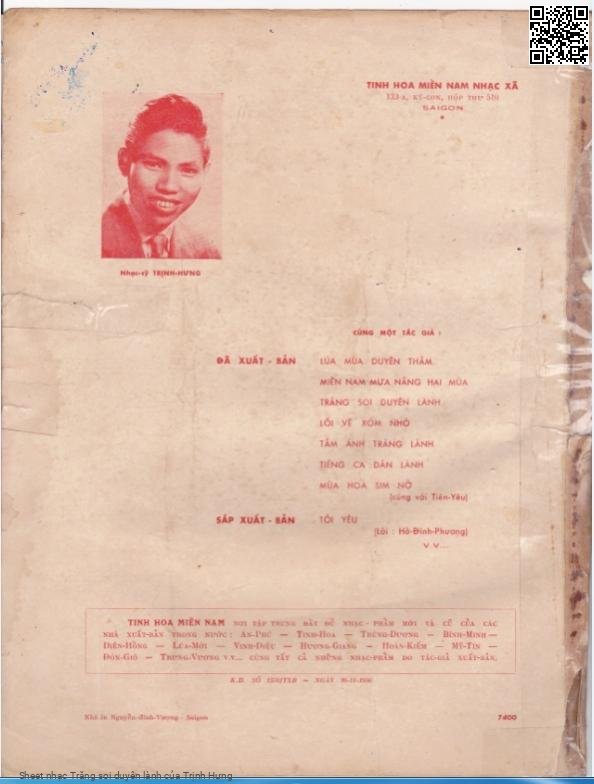 TINH HOA MIỀN NAM NHẠC XÃ
133-A, KÝ-CON, HỘP THƯ 510
SAIGON
Nhạc-sỹ TRỊNH-HƯNG
CÙNG MỘT TÁC GIẢ :
ĐÃ XUẤT - BẢN LÚA MÙA DUYÊN THẮM
MIỀN NAM MƯA NẮNG HAI MÙA
TRĂNG SOI DUYÊN LÀNH
LỐI VỀ XÓM NHỎ
TẮM ÁNH TRĂNG LÀNH
TIẾNG CA DÂN LÀNH
MÙA HOA SIM NỞ
(cùng với Tiên-Yêu)
SẮP XUẤT - BẢN TÔI YÊU
(Lời : Hồ-Đình-Phương)
V.V...
TINH HOA MIỀN NAM NƠI TẬP TRUNG ĐẦY ĐỦ NHẠC - PHẨM MỚI VÀ CŨ CỦA CÁC
NHÀ XUẤT-BẢN TRONG NƯỚC : AN-PHÚ — TINH-HOA — TRÙNG-DƯƠNG — BÌNH-MINH —
DIÊN-HỒNG — LÚA-MỚI — VINH-DIỆU — HƯƠNG-GIANG — HOÀN-KIẾM — MỸ-TÍN —
ĐÓN-GIÓ — TRƯNG-VƯƠNG V.V... CÙNG TẤT CẢ NHỮNG NHẠC-PHẨM DO TÁC-GIẢ XUẤT-BẢN.
K.D. SỐ — NGÀY
Nhà in Nguyễn-đình-Vượng - Saigon 7400
Sheet nhạc Trăng soi duyên lành của Trịnh Hưng